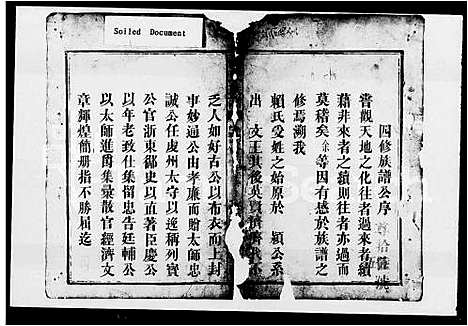 Soiled Document
四修族譜公序
嘗觀天地之化往者過來者續
藉非來者之續則往者亦過而
莫稽矣余等因有感於族譜之
修焉溯我
賴氏受姓之始原於 潁公系
出 文王其後英賢
乏人如好古公以布衣而上封
事妙通公由孝廉而贈太師忠
誠公任虔州太守以逸稱列寶
公官浙東御史以直著臣慶公
以年老致仕集留忠告廷輔公
以太師進爵集彙散官經濟文
章輝煌簡册指不勝屈迄